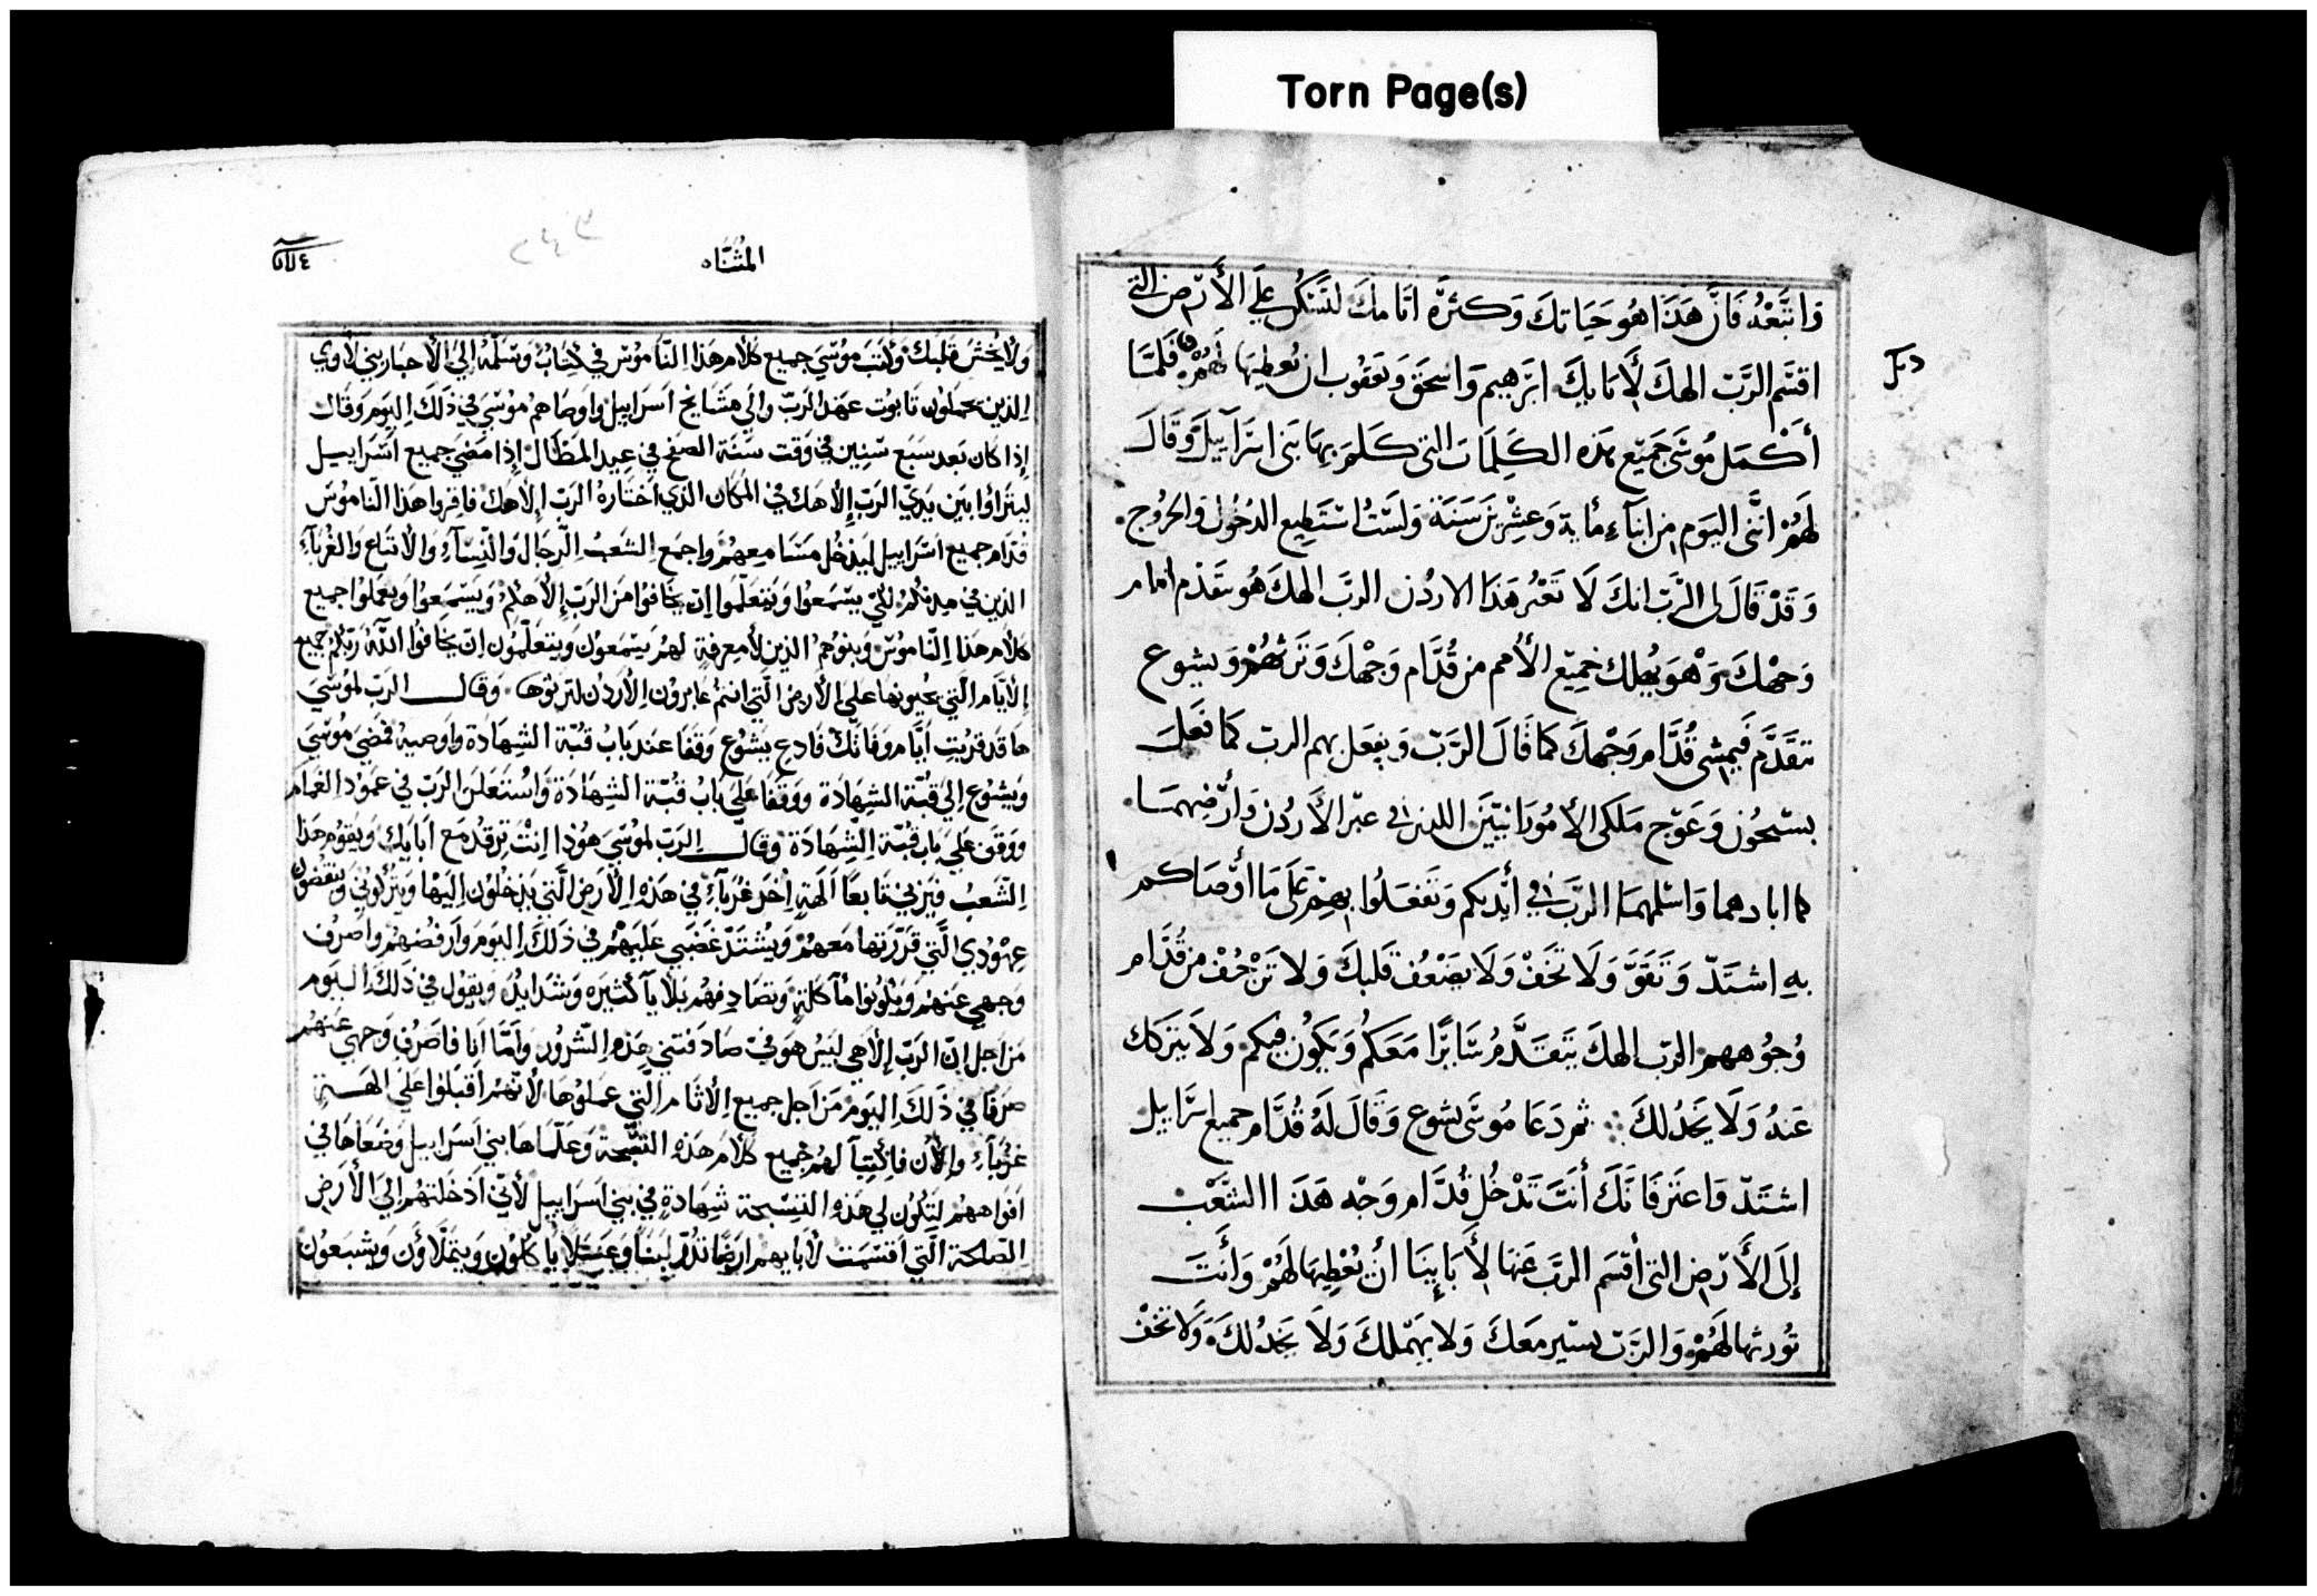 Torn Page(s)
وَاتبَّعْهُ فَانَّ هَذَا هُو حَيَاتكَ وَكثرَّة اتَامكَ لتَسْكن عَلَى الأَرْض التى
اقسَم الرَّبّ الهكَ لأَبَايكَ ابرَهيم وَاسحَق وَيَعقوب ان يُعطيهَا لَهُمْ فَلمَّا
أَكْمَل مُوسَى جَميْع هَذه الكَلِمَات التى كَلمَ بِهَا بَنى اسرَآييلَ وَقَالَ
لهُمْ اننَّى اليَوم من ابنآء مأية وَعِشْرِينَ سَنَة وَلسْتُ اسْتَطِيع الدُخُول وَالخرُوج
وَقَدْ قَالَ لى الرَّبّ انكَ لَا تَعْبُر هَذَا الاردُن الربّ الهكَ هُو يتقَدْم امَام
وَجْهكَ وَهْوَ يُهلك جَمِيْع الأُمم من قُدَّام وَجْهكَ وَتَرثهُمْ وَيشوع
يتقَدَّم فَيمشى قُدَّام وَجْهكَ كمَا قَالَ الرَّبّ وَيفعَل بهم الربّ كمَا فعَلَ
بسيْحُون وَعَوْج مَلكى الأمُورَانييْنَ اللذين فى عبْر الأَردُن وَأَرْضِهمَا
كما ابادهما وَاسْلمهمَا الرَّبّ فى أَيْديكم وَتَفعَلُوا بهِمْ عَلَى مَا أَوْصَاكم
بهِ اشتَدّ وَتَقَوَّ وَلَا تَخَفْ وَلَا يضْعُف قَلبكَ وَلا تَزْحُفْ من قُدَّام
وُجُوههم الربّ الهكَ يتَقَدَّمُ سَايرًا مَعَكُم وَيَكُون فيكم وَلَا يَتركك
عَنهُ وَلَا يَخذُلكَ ثم دَعَا مُوسَى يشوع وَقَالَ لَهُ قُدَّام جميع اسرَاييل
اشتَدّ وَاعتَز فَانَكَ أَنتَ تَدْخُل قُدَّام وَجْه هَذَا الشَّعْب
إلَى الأَرْض التى أَقسَم الرَّبّ عَنهَا لأَبَاينَا أَنْ يُعْطِيهَا لَهُمْ وَأَنتَ
تُورثهَا لَهُمْ وَالرَّبّ يسير مَعَكَ وَلا يهْملكَ وَلَا يَخذُلكَ وَلَا تَخَفْ
المثنَّاه
٢٤٣
وَلَا يَخْشَ قَلبَكَ وَكَتبَ مُوسَى جميع كَلَام هَذَا النَّامُوس في كِتَابٌ وَسَلّمَهُ إلى الأَحبَار بَني لَاوي
الذين يحملُون تَابُوت عَهْد الرَبّ وَإلى مَشَايخ اسرَاييل وَاوصَاهم مُوسَى في ذَلكَ اليَوم وَقَالَ
إذا كان بَعد سَبَع سِنِين في وَقت سَنَة الصَفح في عِيد المَظَال إذا مَضى جميع اسرَاييل
ليترَاوا بَين يدَي الرَبّ إلَاهك في المكَان الذي اختَارهُ الرَبّ إلَاهك فاقروا هَذا النّامُوس
قُدّام جميع اسرَاييل ليدخُل مَسَامعِهُمْ واجمَع الشَعبُ الرّجَال وَالنّسَآءِ وَالأتبَاع وَالغُربَآءِ
الذين في مدنكُمْ لكي يسْمَعوُا وَيَتعَلّمَوا ان يخَافوا مَن الرَبّ إلَاهكُم وَيَسْمَعوا وَيعمَلوا جميع
كلَام هَذا النّامُوس وَبنوُهمُ الذين لَا مِعرفةٍ لهمُ يَسْمَعُون وَيتعَلّمُون ان يخَافُوا اللّهَ رَبّكُم جميع
الأيّام التي يحيونهَا على الأرض التي انتم عَابروُن الأردُن لترثوُها وَقال الرَبّ لموُسى
هَا قد قربت أيّام وَفَاتكَ فادع يَشُوع وَقفَا عند بَابُ قبّة الشهَادَة وَاوصيهُ فمضى مُوسَى
وَيشُوع إلى قبّة الشهَادَة وَوقفَا على بَابُ قُبّة الشِهَادَة وَاستعلَن الرَبّ في عَمُود الغَمام
وَوقف على بَاب قُبّة الشهَادَة وَقال الرَبّ لموُسى هُوَذا انْت ترقُد مَع ابَايكَ وَيقوُم هَذا
الشّعبُ فيزني تابعًا آلهةٍ اخَر غُربآءِ في هَذه الأرَض التي يدخلوُن إليَهْا وَيتركُوني وَينقضُون
عهُودي التي قرّرتها مَعهمُ وَيشتدّ غَضَبي عَليهم في ذَلكَ اليوَم وَارفضهُم وَاصرُف
وَجهي عَنهم وَيكوُنوا مأكلةً وَتصَادفهُم بَلَايَآ كثيرَه وَشدَايدٌ وَيقول في ذَلكَ اليَوم
مَن اجل ان الرَبّ إلَاهي ليسُ هوَ فيّ صَادفَتني هَذه الشّرُور وَأمّا أنا فاصَرُف وَجهي عَنهم
صَرفا في ذَلكَ اليوَم مَن اجل جميع الأثَام التي عمَلوُها لأنّهم اقبَلوا على الهَةٍ
غُربآءِ وَالآن فاكتبَا لهمُ جميع كلَام هَذه التسبحة وَعَلّماهَا بني اسَرَاييل وَضعَاهَا في
افوَاههم لتكُون لي هَذه التسْبحة شهَادةٍ في بني اسرَاييل لأني ادخلتهُم إلى الأرَض
الصّالحة التي اقسَمت لأبايهم ارضًا تدُرّ لبنًا وَعَسَلًا يأكلُون وَيتملّاؤن وَيشبعُون